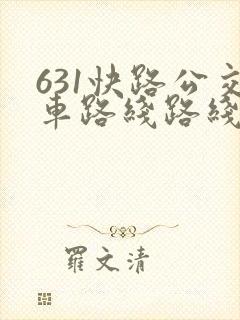 631快路公交
車路綫路綫
羅文清